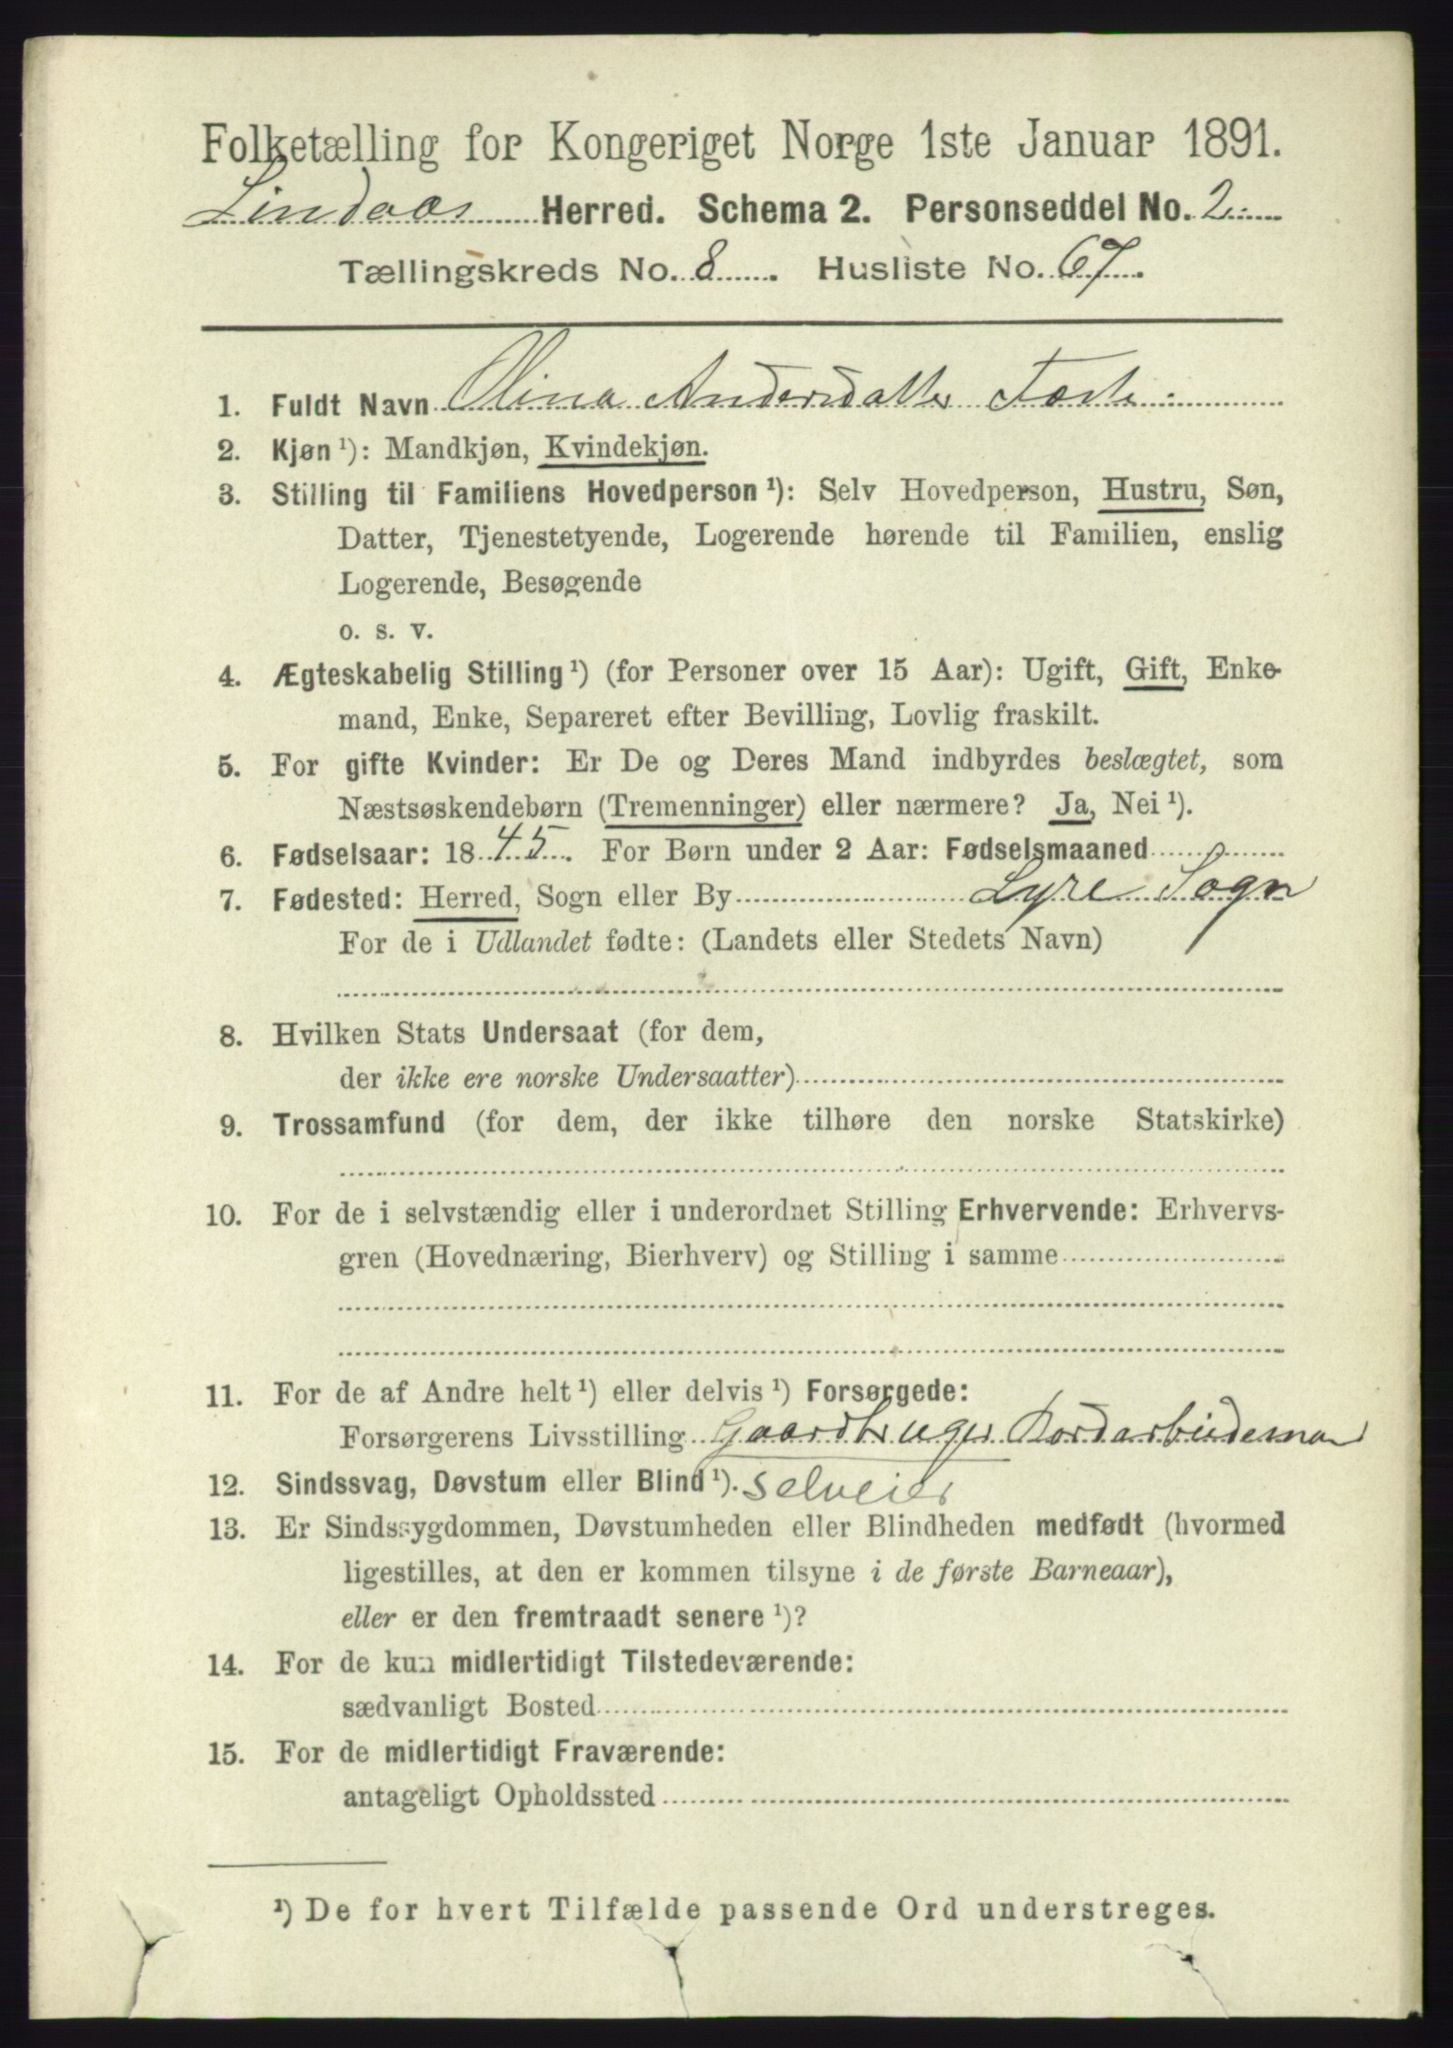 Folketælling for Kongeriget Norge 1ste Januar 1891.
Lindaas Herred. Schema 2. Personseddel No. 2
Tællingskreds No. 8. Husliste No. 67.
1. Fuldt Navn Olina Andersdatter
2. Kjøn ¹): Mandkjøn, Kvindekjøn.
3. Stilling til Familiens Hovedperson ¹): Selv Hovedperson, Hustru, Søn,
Datter, Tjenestetyende, Logerende hørende til Familien, enslig
Logerende, Besøgende
o. s. v.
4. Ægteskabelig Stilling ¹) (for Personer over 15 Aar): Ugift, Gift, Enke-
mand, Enke, Separeret efter Bevilling, Lovlig fraskilt.
5. For gifte Kvinder: Er De og Deres Mand indbyrdes beslægtet, som
Næstsøskendebørn (Tremenninger) eller nærmere? Ja, Nei ¹).
6. Fødselsaar: 1845. For Børn under 2 Aar: Fødselsmaaned
7. Fødested: Herred, Sogn eller By Lyre Sogn
For de i Udlandet fødte: (Landets eller Stedets Navn)
8. Hvilken Stats Undersaat (for dem,
der ikke ere norske Undersaatter)
9. Trossamfund (for dem, der ikke tilhøre den norske Statskirke)
10. For de i selvstændig eller i underordnet Stilling Erhvervende: Erhvervs-
gren (Hovednæring, Bierhverv) og Stilling i samme
11. For de af Andre helt ¹) eller delvis ¹) Forsørgede:
Forsørgerens Livsstilling Gaardbruger Jordarbeidsman
12. Sindssvag, Døvstum eller Blind ¹). Selveier
13. Er Sindssygdommen, Døvstumheden eller Blindheden medfødt (hvormed
ligestilles, at den er kommen tilsyne i de første Barneaar),
eller er den fremtraadt senere ¹)?
14. For de kun midlertidigt Tilstedeværende:
sædvanligt Bosted
15. For de midlertidigt Fraværende:
antageligt Opholdssted
¹) De for hvert Tilfælde passende Ord understreges.